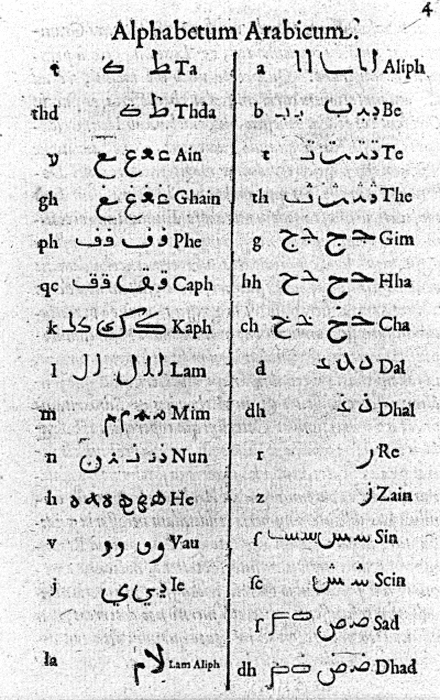 4
Alphabetum Arabicum.
a ا ا ا ا Aliph
b ب ب ب Be
t ت ت ت Te
th ث ث ث The
g ج ج ج Gim
hh ح ح ح Hha
ch خ خ خ Cha
d د د د Dal
dh ذ ذ Dhal
r ر Re
z ز Zain
ſ س س س Sin
ſc ش ش Scin
ſ ص ص ص Sad
dh ض ض ض Dhad
t ط Ta
thd ظ Thda
y ع ع ع ع Ain
gh غ غ غ غ Ghain
ph ف ف ف ف Phe
qc ق ق ق ق Caph
k ك ك ك ك Kaph
l ل ل ل ل Lam
m م م م م Mim
n ن ن ن ن Nun
h ه ه ه ه ه ه He
v و و و و Vau
j ي ي ي Ie
la لا م Lam Aliph